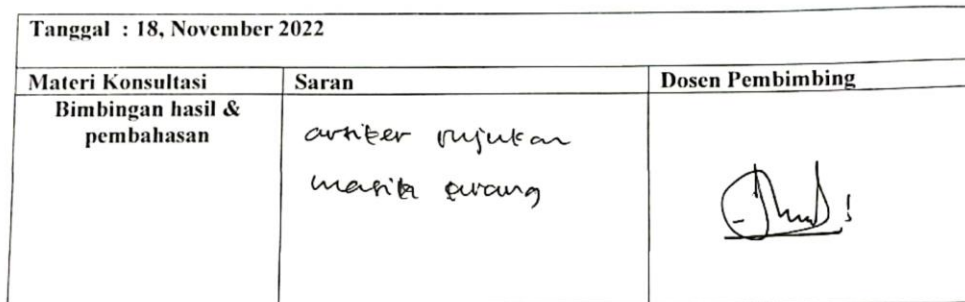 Tanggal : 18, November 2022
Materi Konsultasi Saran Dosen Pembimbing
Bimbingan hasil &
pembahasan
artikel rujukan
masih kurang